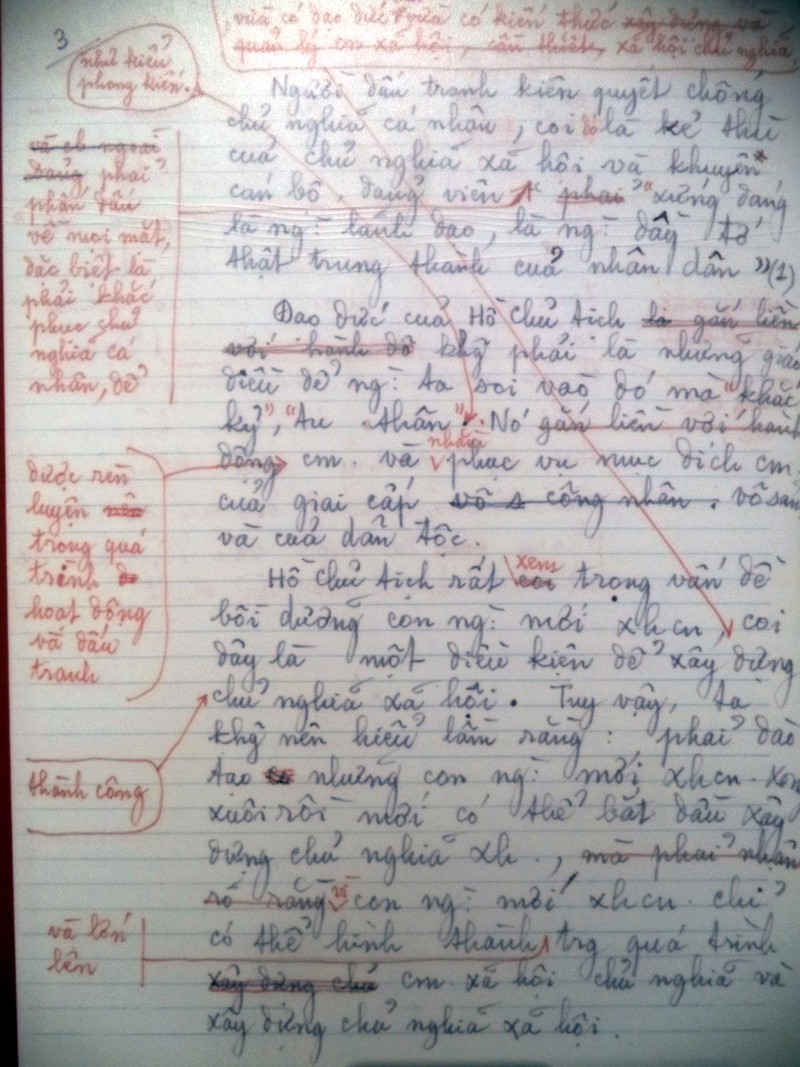 3
, vừa có đạo đức vừa có kiến thức xây dựng và
quản lý cm xã hội, cần thiết, xã hội chủ nghĩa,
như kiểu
phong kiến.
Người đấu tranh kiên quyết chống
chủ nghĩa cá nhân, coi đó là kẻ thù
của chủ nghĩa xã hội và khuyên
cán bộ, đảng viên phải "xứng đáng
là ng: lãnh đạo, là ng: đầy tớ
thật trung thành của nhân dân" (1)
và cb ngoài
Đảng phải
phấn đấu
về mọi mặt,
đặc biệt là
phải khắc
phục chủ
nghĩa cá
nhân, để
Đạo đức của Hồ Chủ tịch là gắn liền
với hành độ khg phải là những giáo
điều để ng: ta soi vào đó mà "khắc
kỷ", "tu thân". Nó gắn liền với hành
động cm. và nhằm phục vụ mục đích cm.
của giai cấp vô s công nhân. vô sản
và của dân tộc.
được rèn
luyện nên
trong quá
trình
hoạt động
và đấu
tranh
Hồ Chủ tịch rất coi xem trọng vấn đề
bồi dưỡng con ng: mới xhcn, coi
đây là một điều kiện để xây dựng
chủ nghĩa xã hội. Tuy vậy, ta
khg nên hiểu lầm rằng: phải đào
tạo những con ng: mới xhcn. xong
xuôi rồi mới có thể bắt đầu xây
dựng chủ nghĩa xh., mà phải nhận
rõ rằng vì con ng: mới xhcn. chỉ
có thể hình thành trg quá trình
xây dựng chủ cm. xã hội chủ nghĩa và
xây dựng chủ nghĩa xã hội.
thành công
và lớn
lên